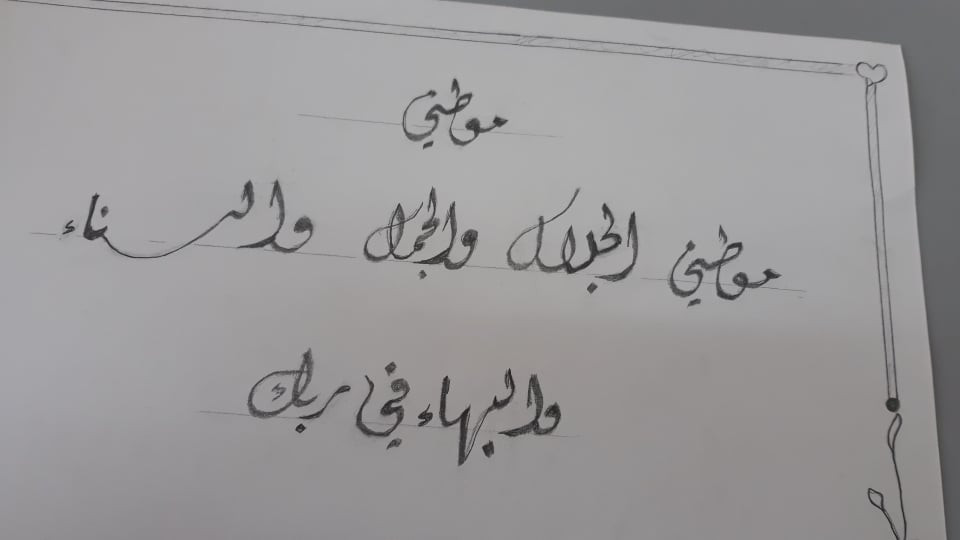 موطني
موطني الجلال والجمال والسناء
والبهاء في رباك